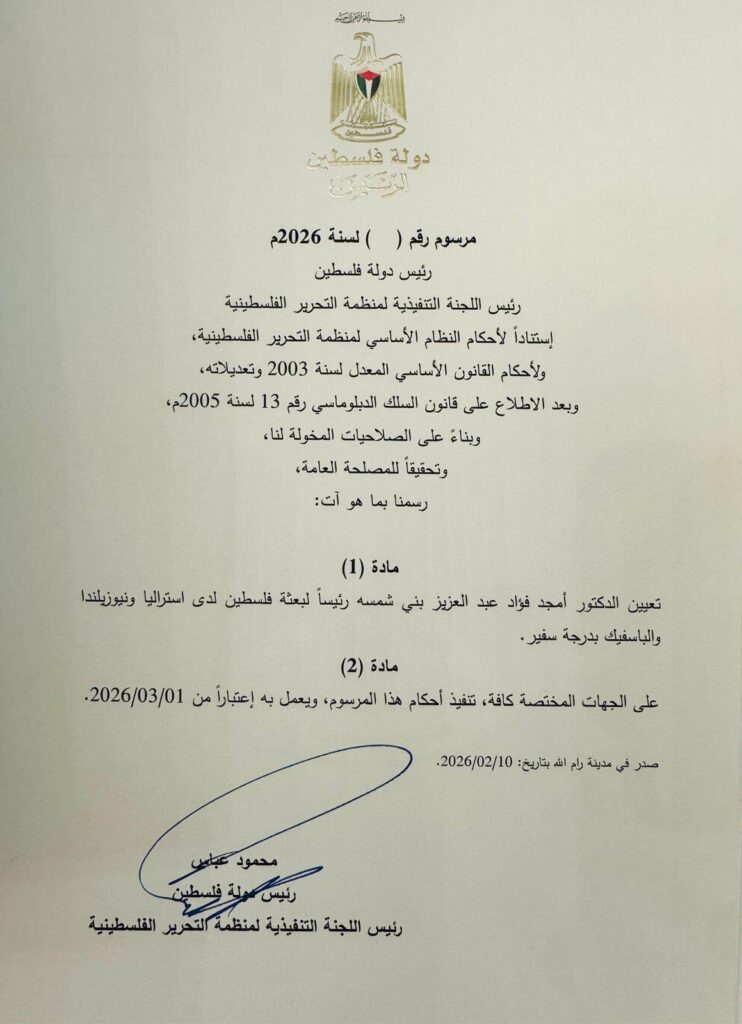 بسم الله الرحمن الرحيم
فلسطين
دولة فلسطين
الرئيس
مرسوم رقم (    ) لسنة 2026م
رئيس دولة فلسطين
رئيس اللجنة التنفيذية لمنظمة التحرير الفلسطينية
إستناداً لأحكام النظام الأساسي لمنظمة التحرير الفلسطينية،
ولأحكام القانون الأساسي المعدل لسنة 2003 وتعديلاته،
وبعد الاطلاع على قانون السلك الدبلوماسي رقم 13 لسنة 2005م،
وبناءً على الصلاحيات المخولة لنا،
وتحقيقاً للمصلحة العامة،
رسمنا بما هو آت:
مادة (1)
تعيين الدكتور أمجد فؤاد عبد العزيز بني شمسه رئيساً لبعثة فلسطين لدى استراليا ونيوزيلندا
والباسفيك بدرجة سفير.
مادة (2)
على الجهات المختصة كافة، تنفيذ أحكام هذا المرسوم، ويعمل به إعتباراً من 2026/03/01.
صدر في مدينة رام الله بتاريخ: 2026/02/10.
محمود عباس
رئيس دولة فلسطين
رئيس اللجنة التنفيذية لمنظمة التحرير الفلسطينية